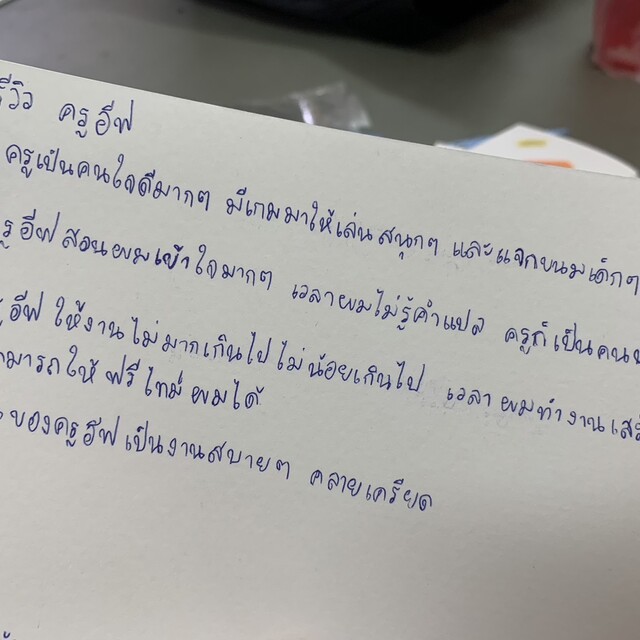 รีวิว ครูอีฟ
ครูเป็นคนใจดีมากๆ มีเกมมาให้เล่นสนุกๆ และแจกขนมเด็กๆ
รูอีฟสอนผมเข้าใจมากๆ เวลาผมไม่รู้คำแปล ครูก็เป็นคน
อีฟ ให้งานไม่มากเกินไปไม่น้อยเกินไป เวลาผมทำงานเสร็
ามารถให้ ฟรีไทม์ ผมได้
ของครูอีฟเป็นงานสบายๆ คลายเครียด